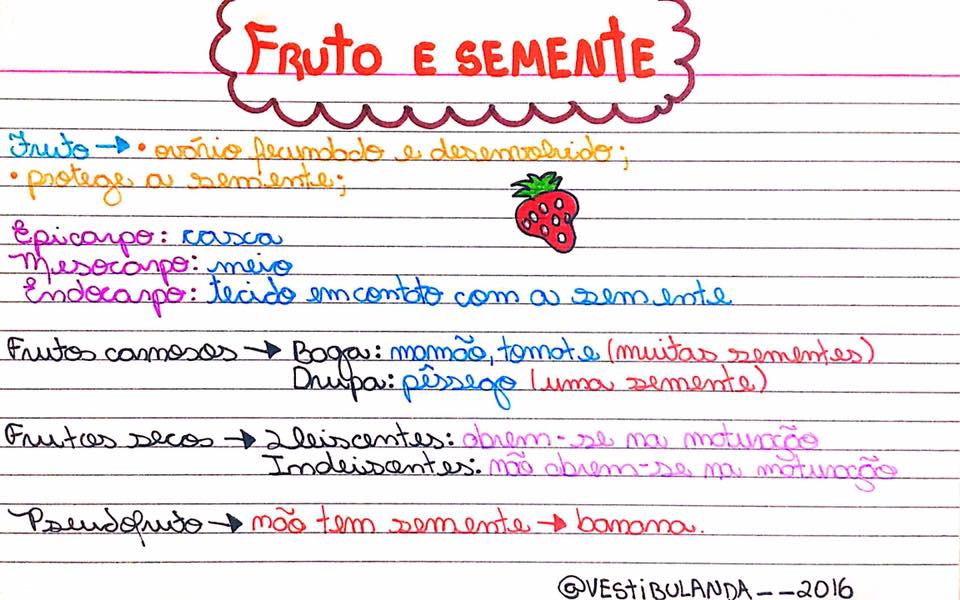 FRUTO E SEMENTE
Fruto → • ovário fecundado e desenvolvido;
• protege a semente;
Epicarpo: casca
Mesocarpo: meio
Endocarpo: tecido em contato com a semente
Frutos carnosos → Baga: mamão, tomate (muitas sementes)
Drupa: pêssego (uma semente)
Frutos secos → Deiscentes: abrem-se na maturação
Indeiscentes: não abrem-se na maturação
Pseudofruto → não tem semente → banana.
@VESTIBULANDA__2016